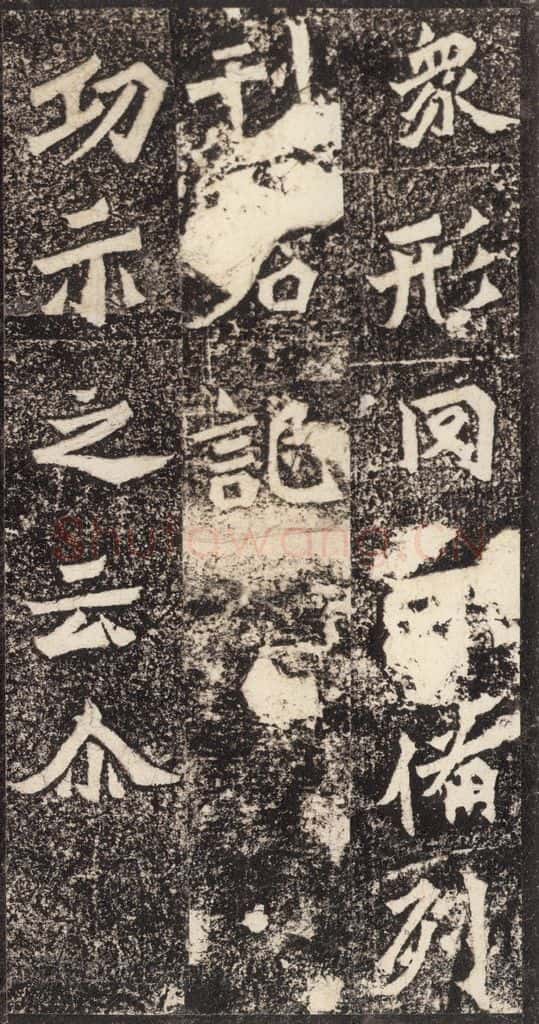 眾形罔備列
刊石記
功示之云尒
Shufawang.cn